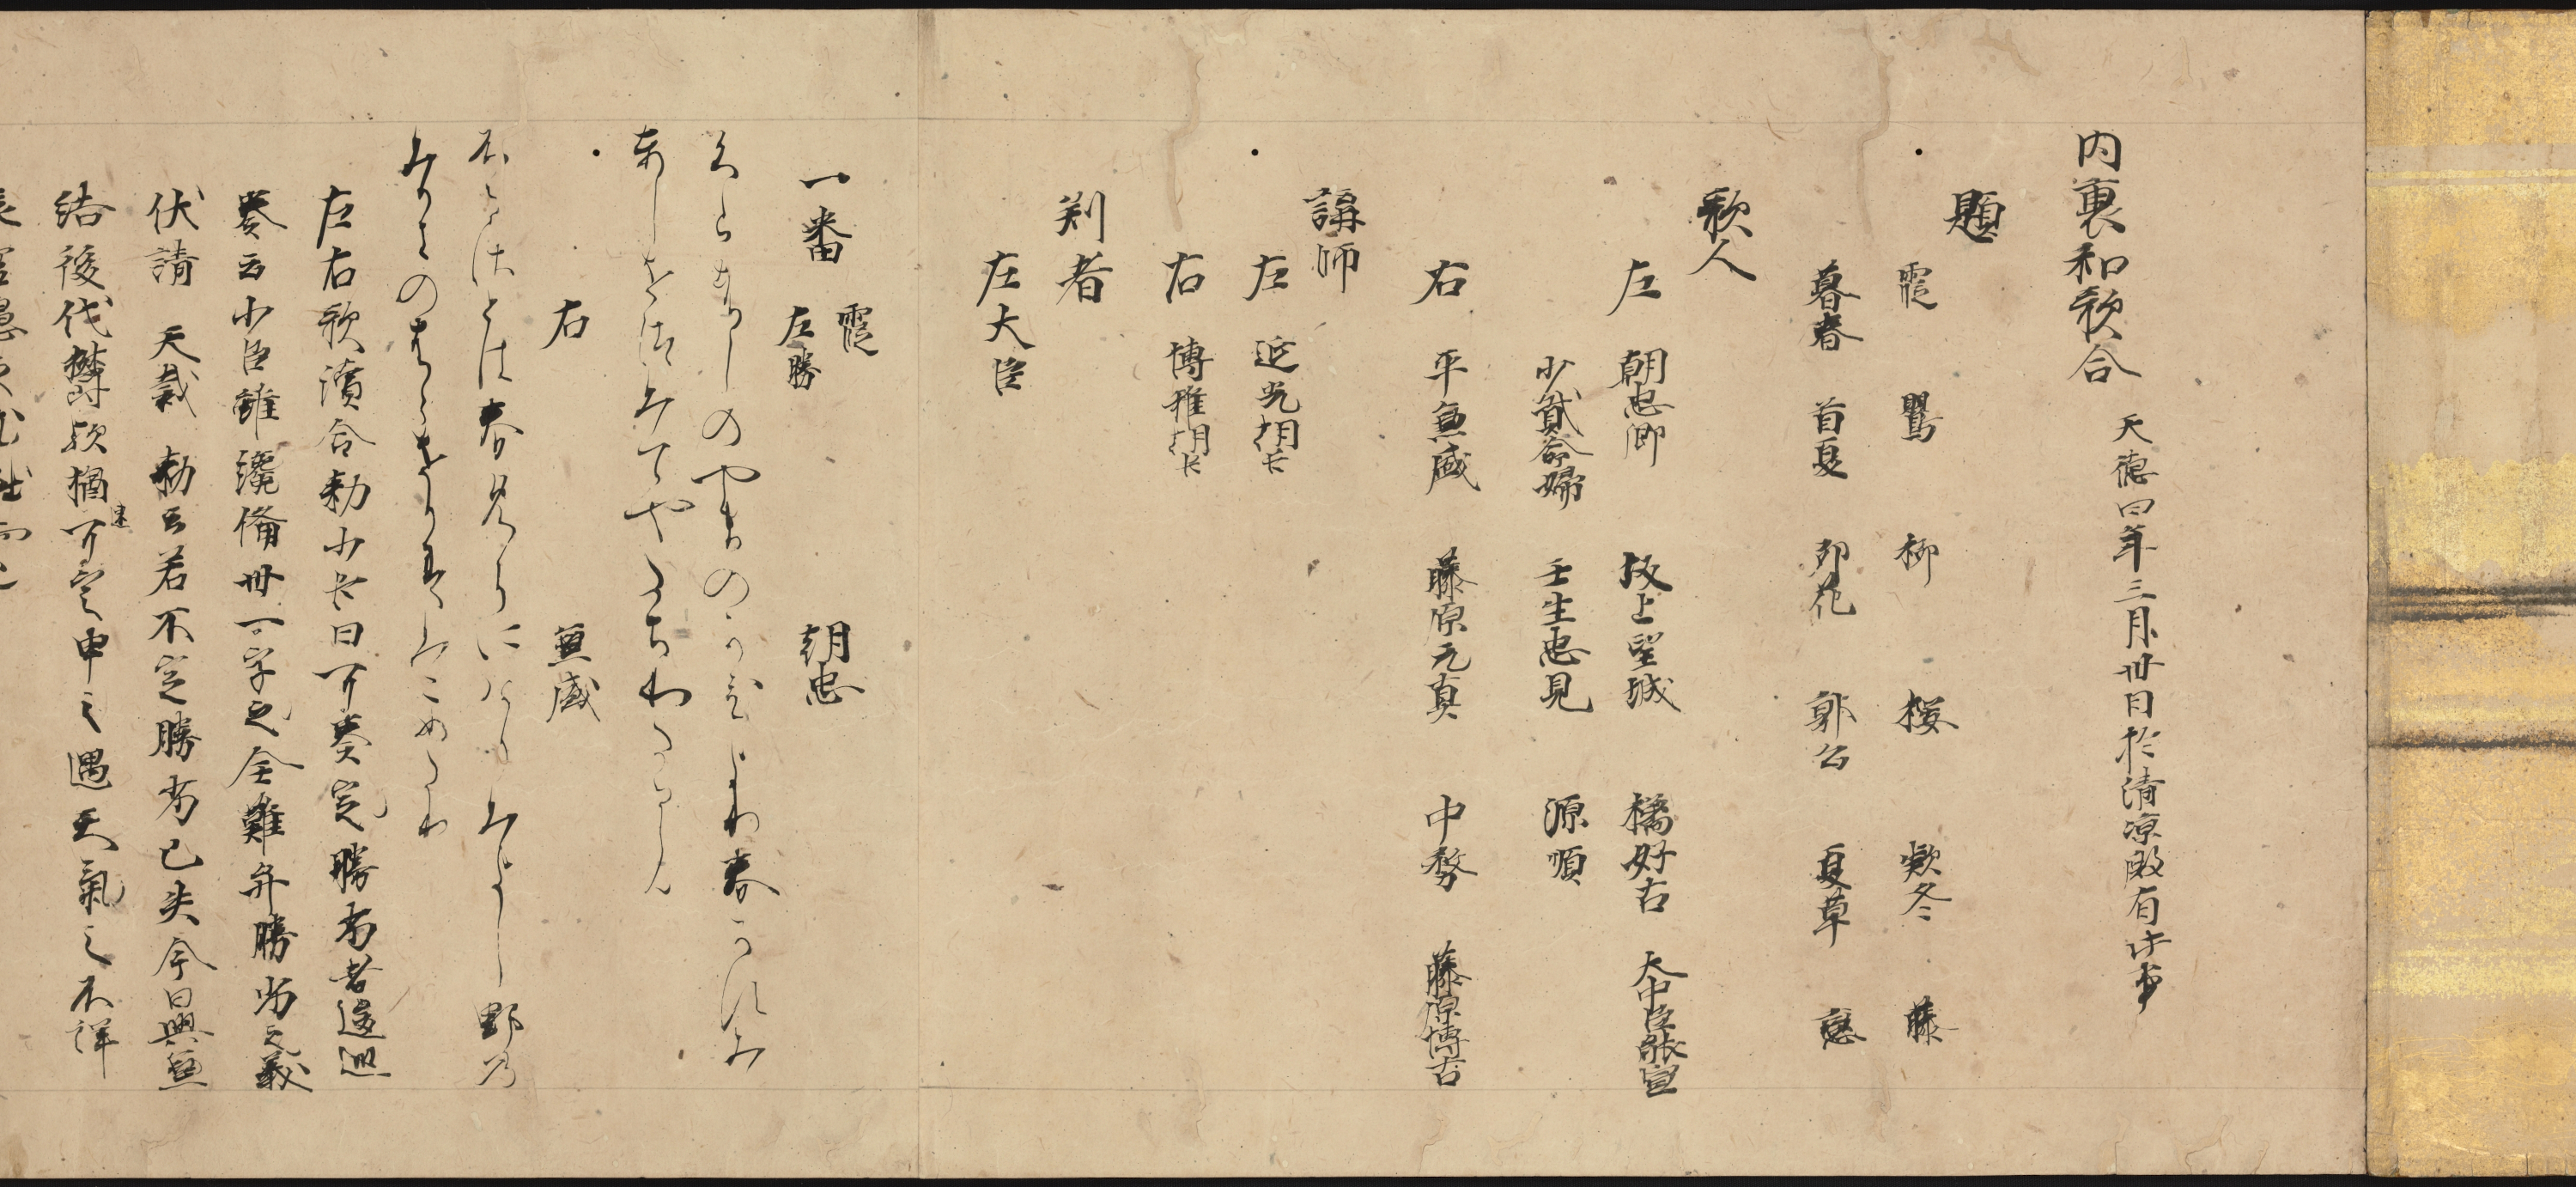 内裏和歌合 天徳四年三月卅日於清凉殿有此事
題
霞 鸎 柳 桜 欵冬 藤
暮春 首夏 卯花 郭公 夏草 戀
歌人
左 朝忠卿 坂上望城 橘好古 大中臣能宣
少貳命婦 壬生忠見 源順
右 平兼盛 藤原元真 中務 藤原博古
講師
左 延光朝臣
右 博雅朝臣
判者
左大臣
一番 霞 左勝 朝忠
くらはしのやまのかひより春かすみ
としをつみてやたちわたるらん
右 兼盛
ふるさとは春めきにけりみよしの野乃
みかきのはらもかすみこめたり
左右歌讀合勅小臣曰可奏定勝劣者逡巡
奏云小臣雖纔備卅一字之全難弁勝劣之義
伏請 天裁 勅云若不定勝劣已失今日興無
結後代欝歟猶可定申之遇天氣之不詳